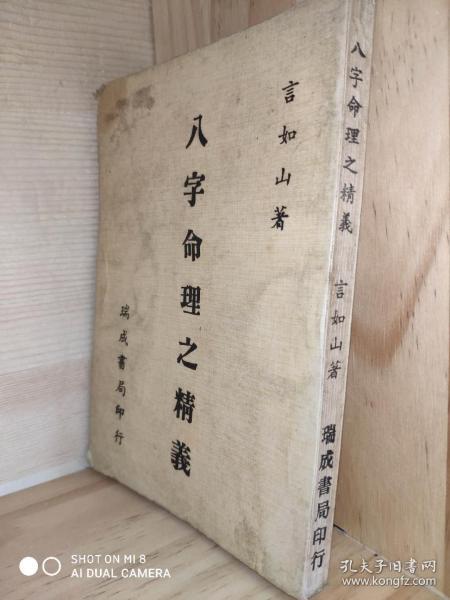 言如山著
八字命理之精義
瑞成書局印行
八字命理之精義
言如山著
瑞成書局印行
SHOT ON MI 8
AI DUAL CAMERA
孔夫子旧书网
www.kongfz.com